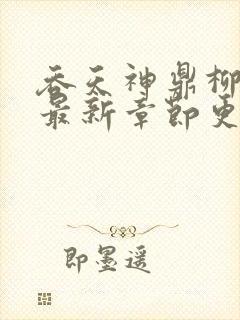 吞天神鼎柳
最新章节更
即墨遥